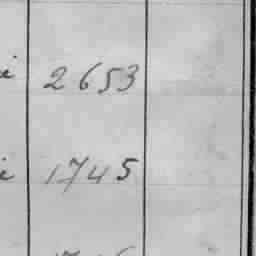 i 2653
i 1745